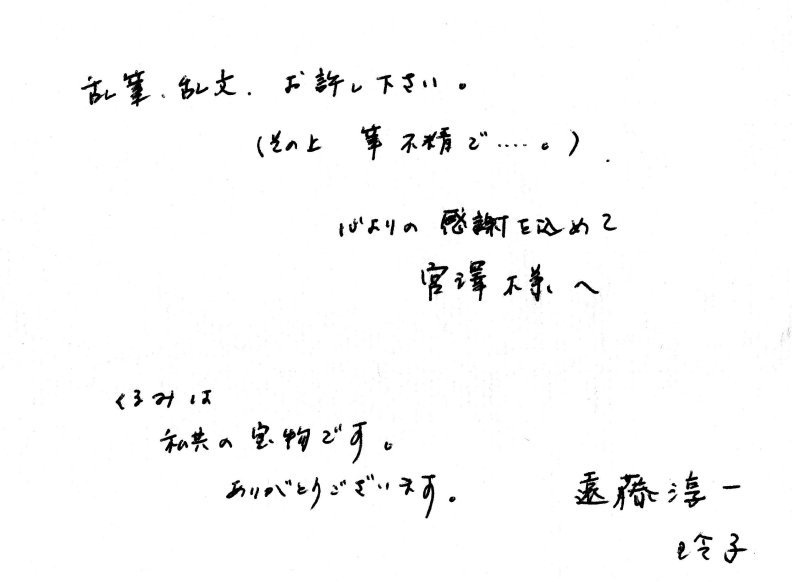 乱筆、乱文、お許し下さい。
(その上 筆不精で‥‥。)
心よりの感謝を込めて
宮澤様へ
くるみは
私共の宝物です。
ありがとうございます。
遠藤淳一
玲子